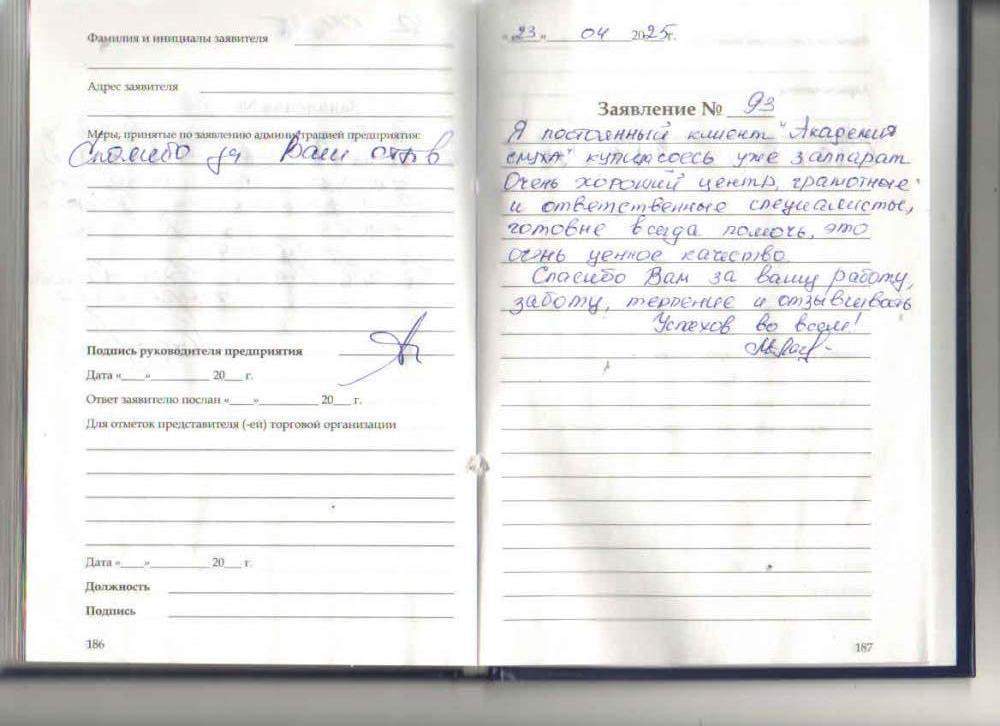 Фамилия и инициалы заявителя
Адрес заявителя
Меры, принятые по заявлению администрацией предприятия:
Спасибо за Ваш отзыв
Подпись руководителя предприятия
Дата «___»__________ 20___ г.
Ответ заявителю послан «____»__________ 20___ г.
Для отметок представителя (-ей) торговой организации
Дата «____»__________ 20___ г.
Должность
Подпись
186
«23» 04 2025г.
Заявление № 93
Я постоянный клиент "Академия
слуха" купил здесь уже 3 аппарат
Очень хороший центр, грамотные
и ответственные специалисты,
готовые всегда помочь, это
очень ценное качество.
Спасибо Вам за вашу работу,
заботу, терпение и отзывчивость
Успехов во всем!
187